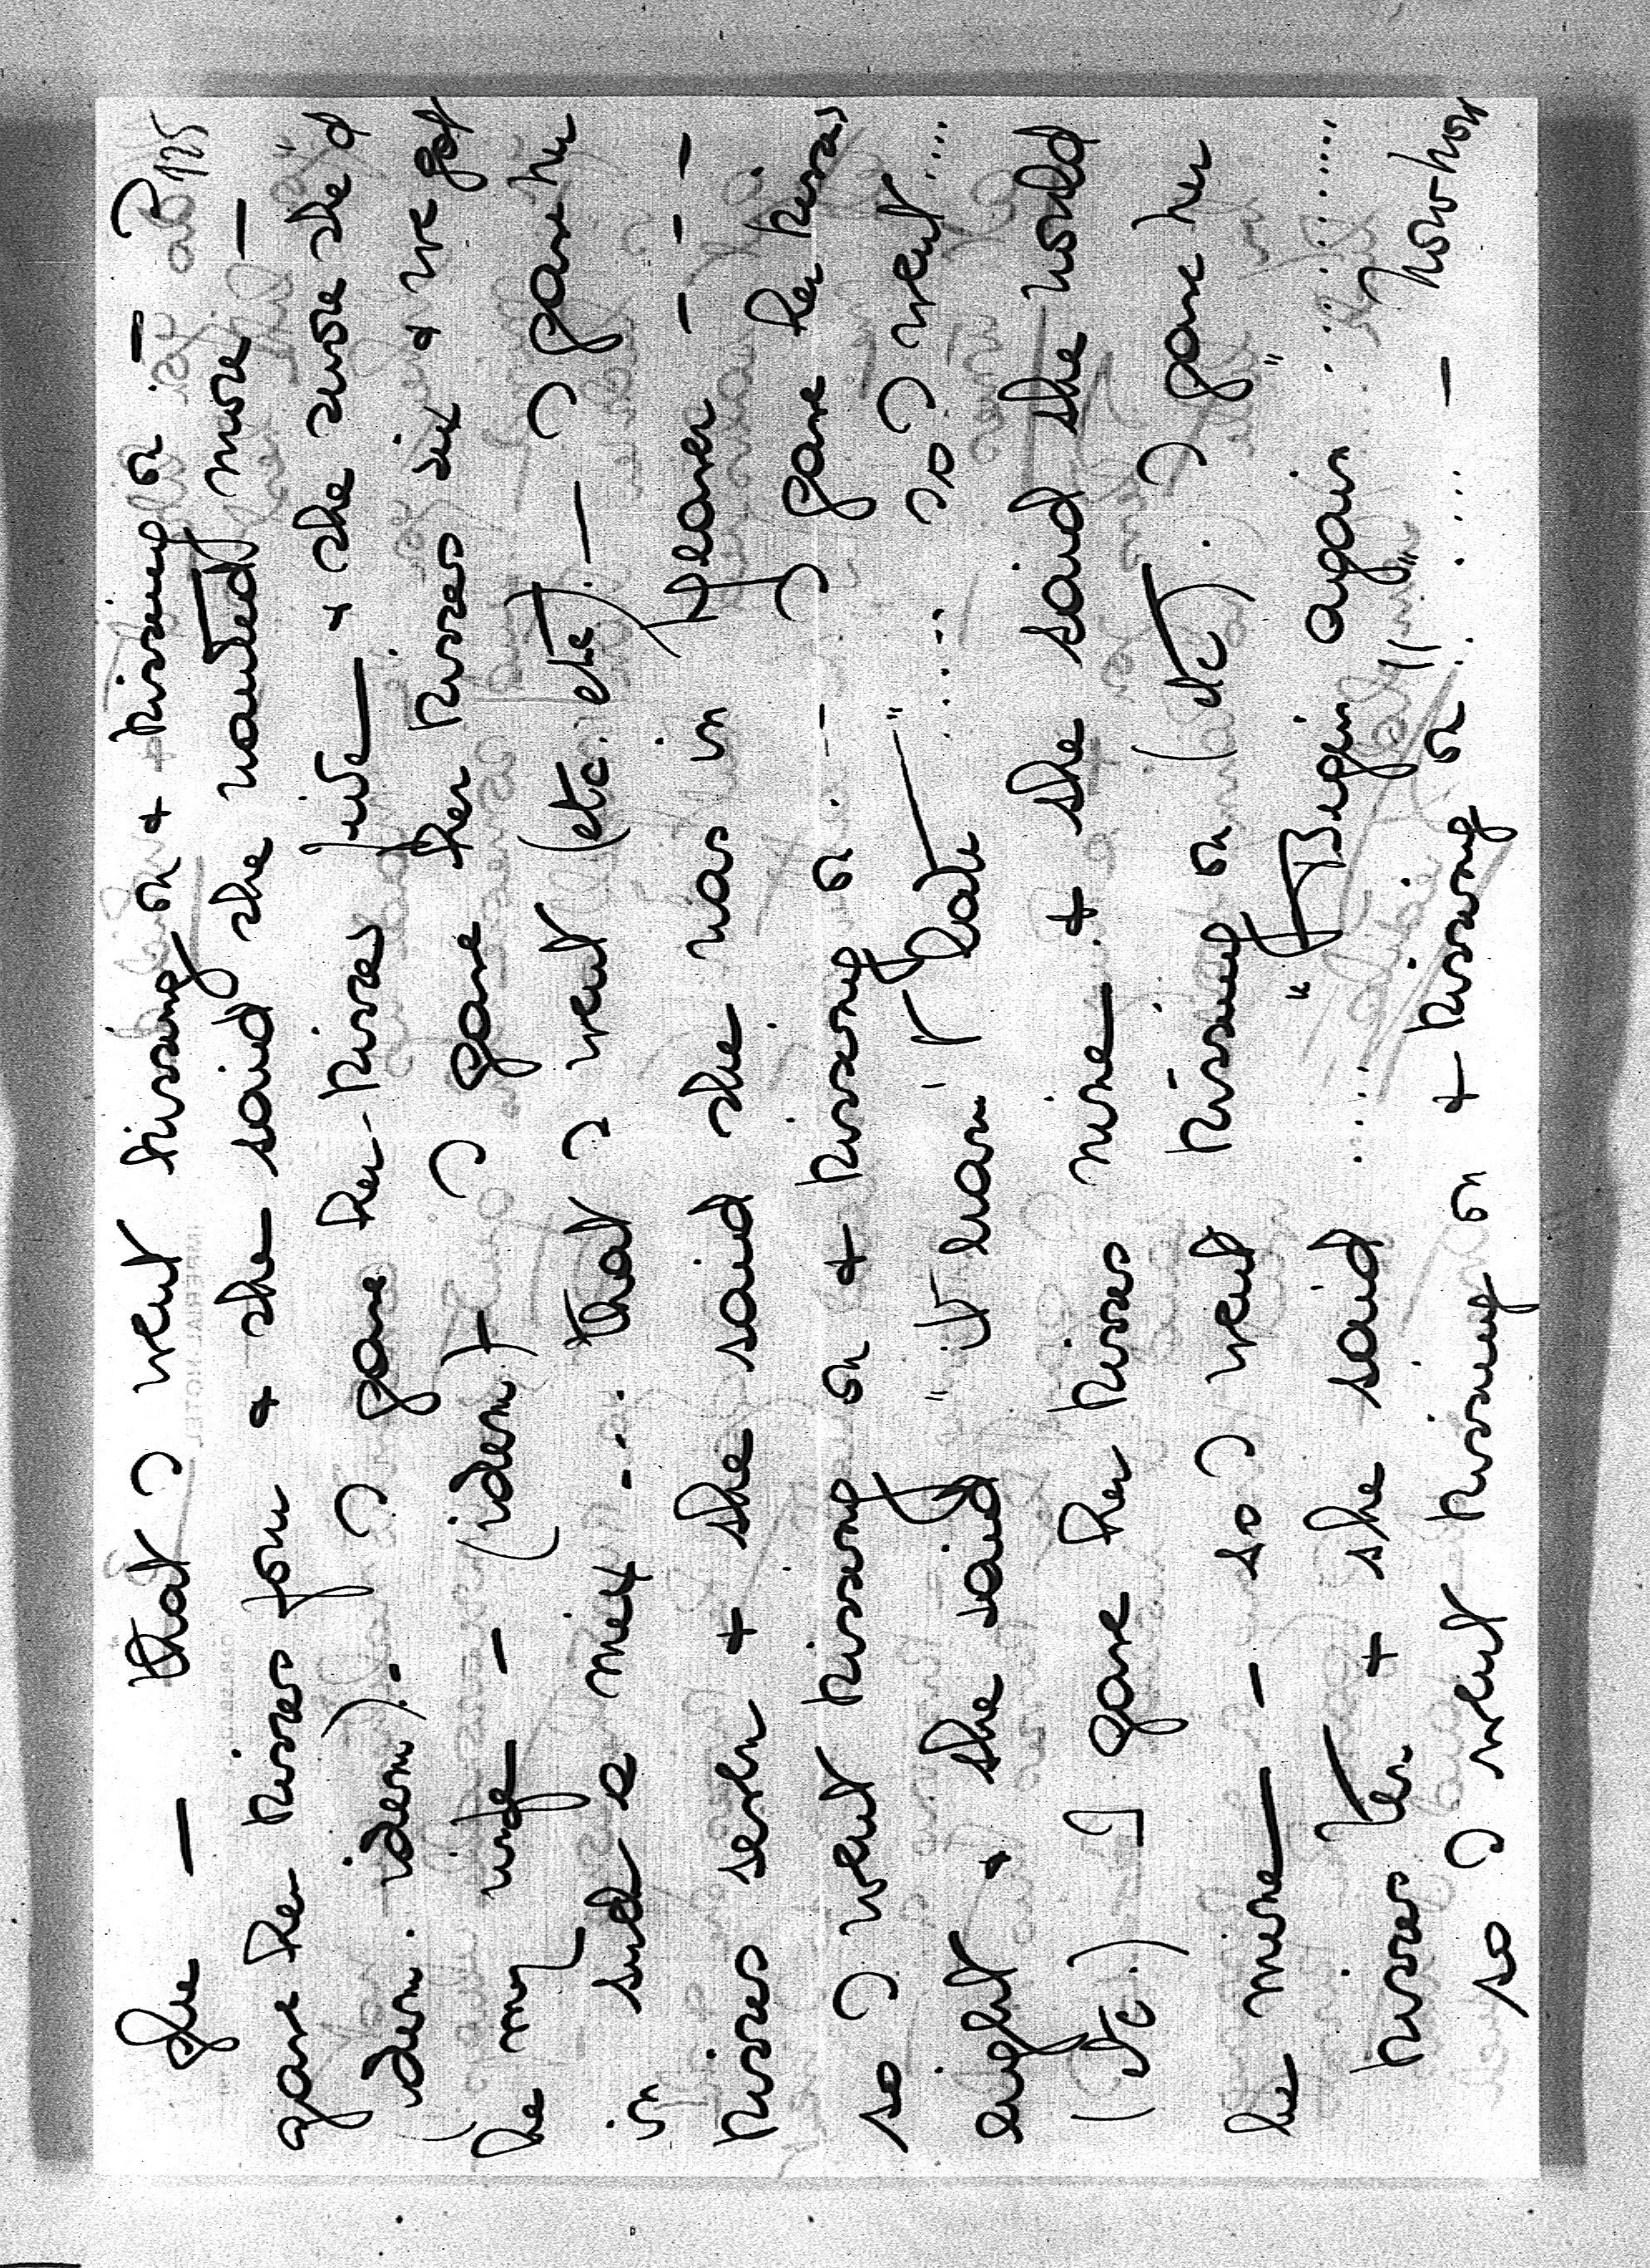 glue — that I went kissing on & kissing on — I
gave her kisses four & she said she wanted more —
(idem. idem). I gave her kisses five — & she swore she'd
be my wife — (idem) + I gave her kisses six & we got
in such a mix .... that I went (etc. etc.) — I gave her
kisses seven + she said she was in Heaven — — —
so I went kissing on & kissing on. — I gave her kisses
eight & she said "it wasn't late" ..... so I went ....
(etc.) I gave her kisses nine + she said she would
be mine — so I went kissing on (etc). I gave her
kisses ten + she said ..... "Begin again" ..........
so I went kissing on + kissing on ..... —